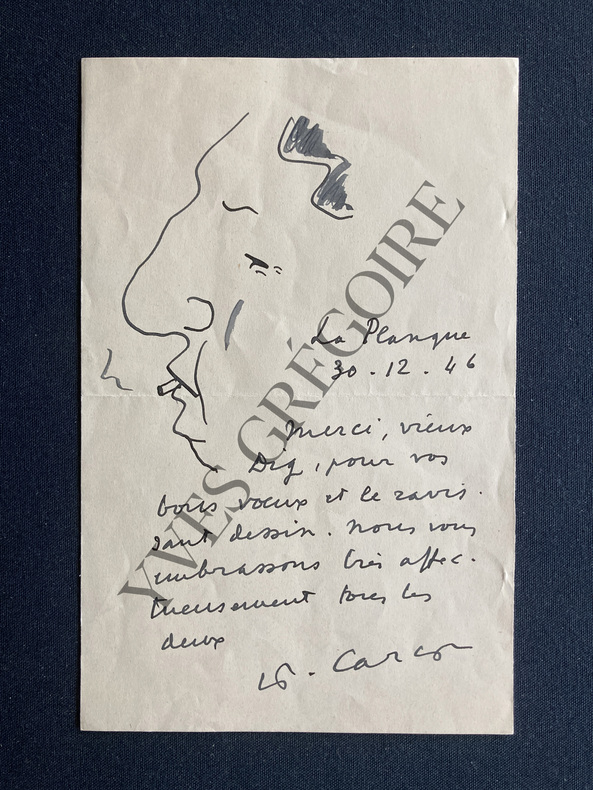 La Planque
30.12.46
Merci, vieux
Dig, pour vos
bons vœux et le ravis.
sant dessin. Nous vous
embrassons très affec.
tueusement tous les
deux
F. Carco
YVES GRÉGOIRE